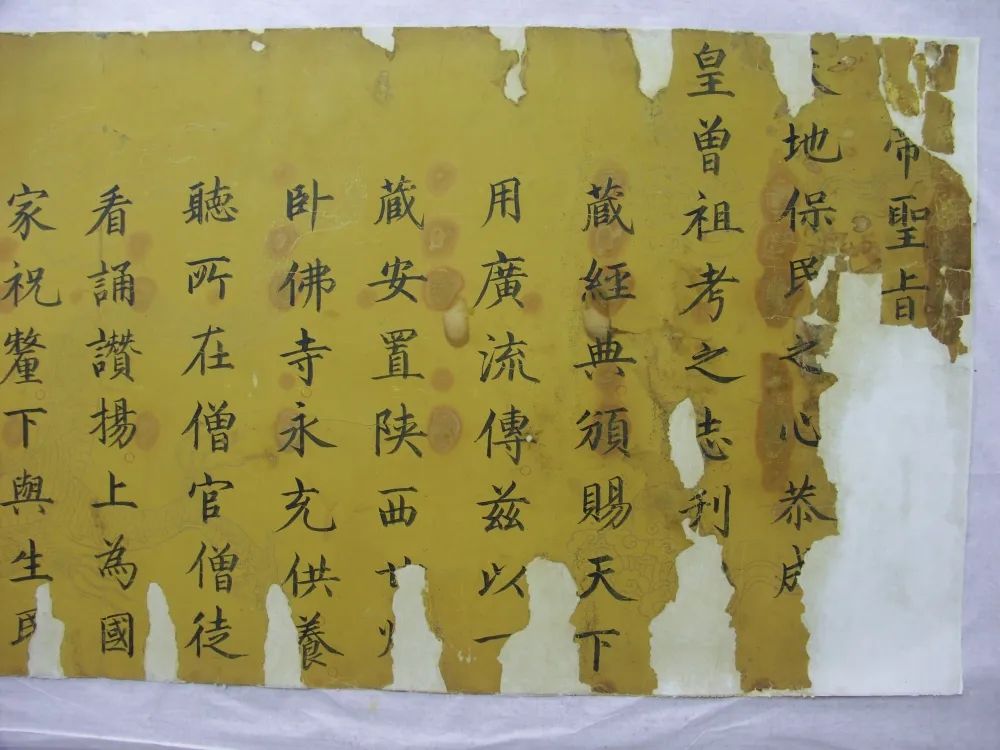 帝聖旨
地保民之心恭成
皇曾祖考之志刊
藏經典頒賜天下
用廣流傳茲以一
藏安置陕西
卧佛寺永充供養
聽所在僧官僧徒
看誦讚揚上為國
家祝釐下與生民